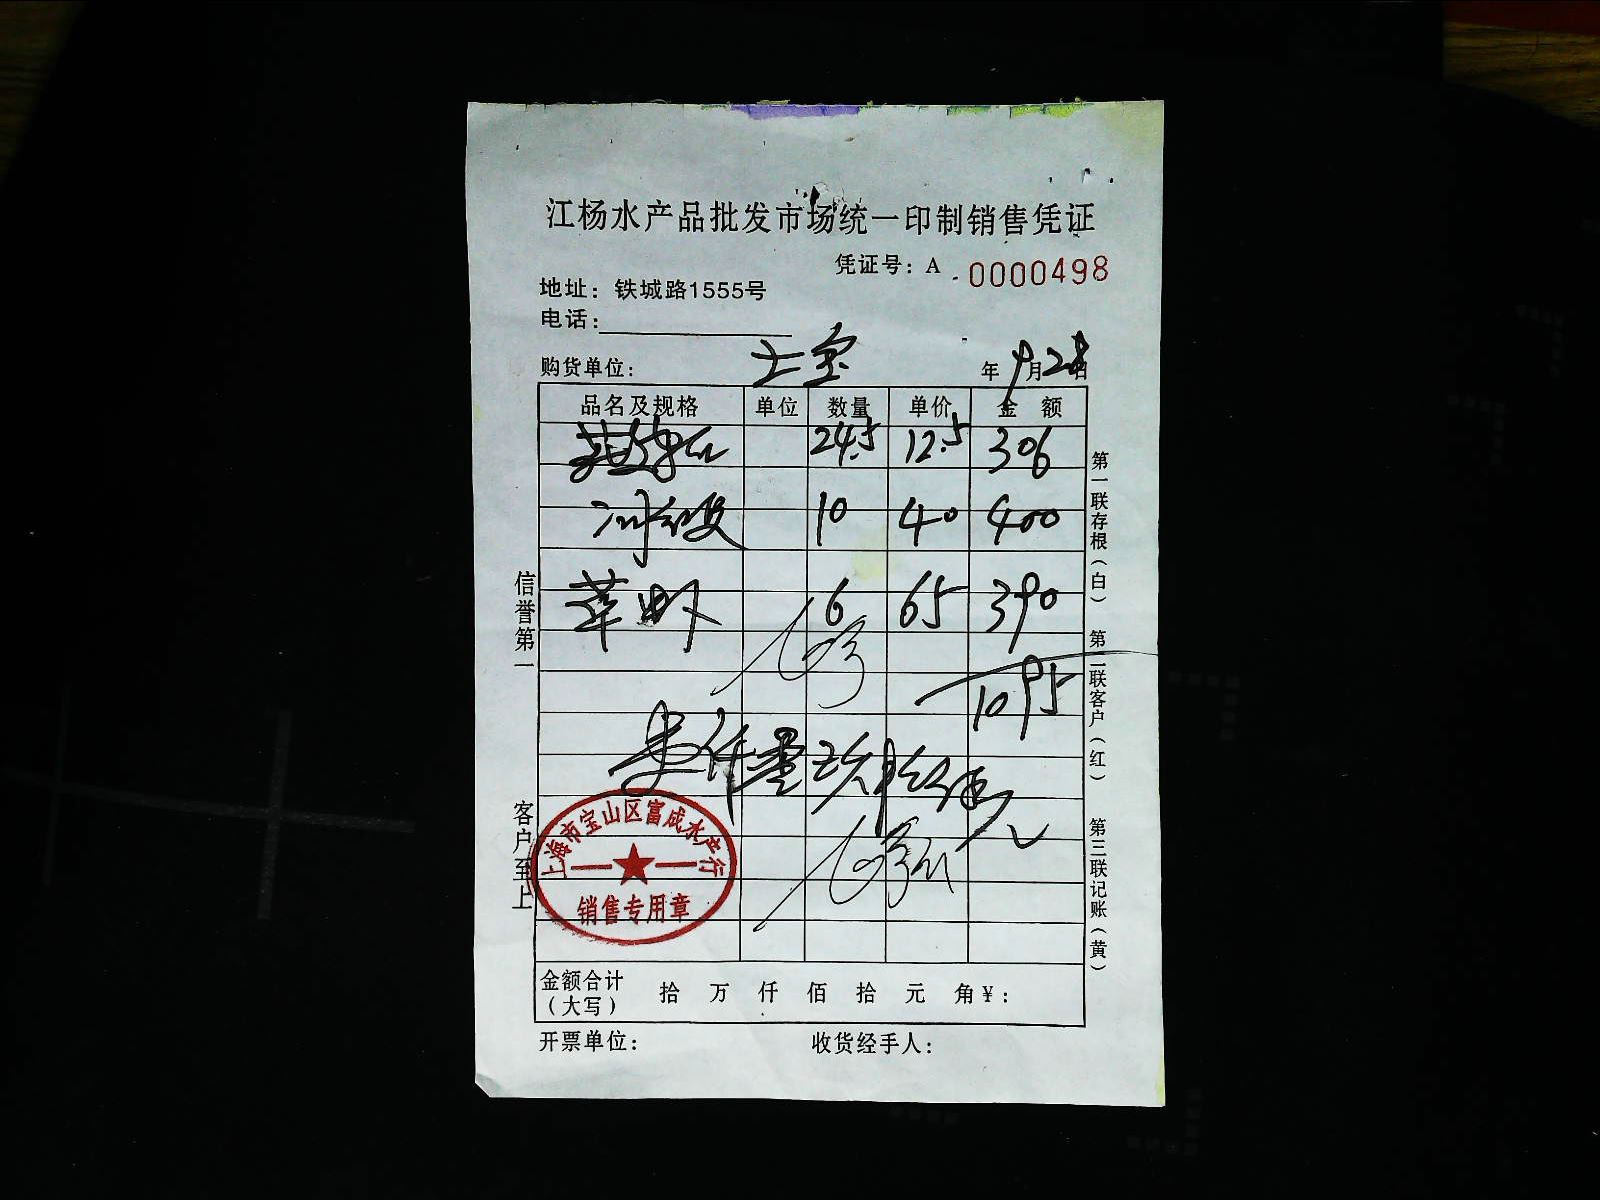 江杨水产品批发市场统一印制销售凭证
凭证号：A 0000498
地址：铁城路1555号
电话：
购货单位： 年9月28日
品名及规格 单位 数量 单价 金额
24.5 12.5 306
10 40 400
6 65 390
1095
信誉第一
客户至上
第一联存根（白） 第二联客户（红） 第三联记账（黄）
上海市宝山区富成水产行
销售专用章
金额合计（大写） 拾 万 仟 佰 拾 元 角 ¥：
开票单位： 收货经手人：